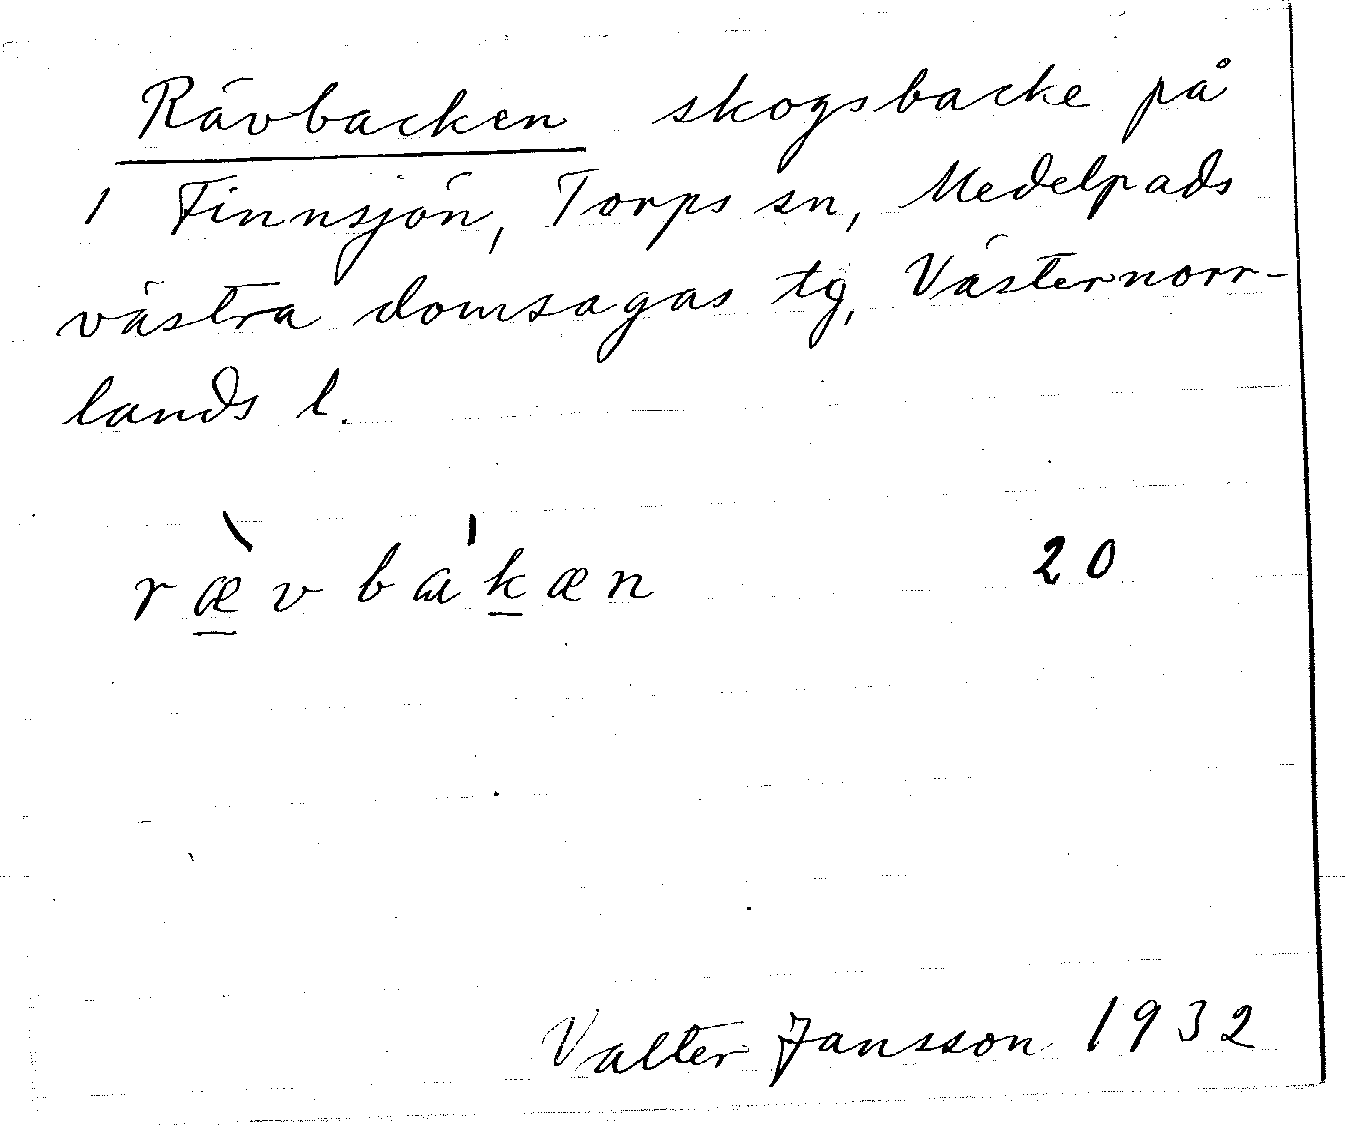 Rävbacken skogsbacke på
1 Finnsjön, Torps sn, Medelpads
västra domsagas tg, Västernorr-
lands l.
ræ̱̀vba'ḵæn 20
Valter Jansson 1932